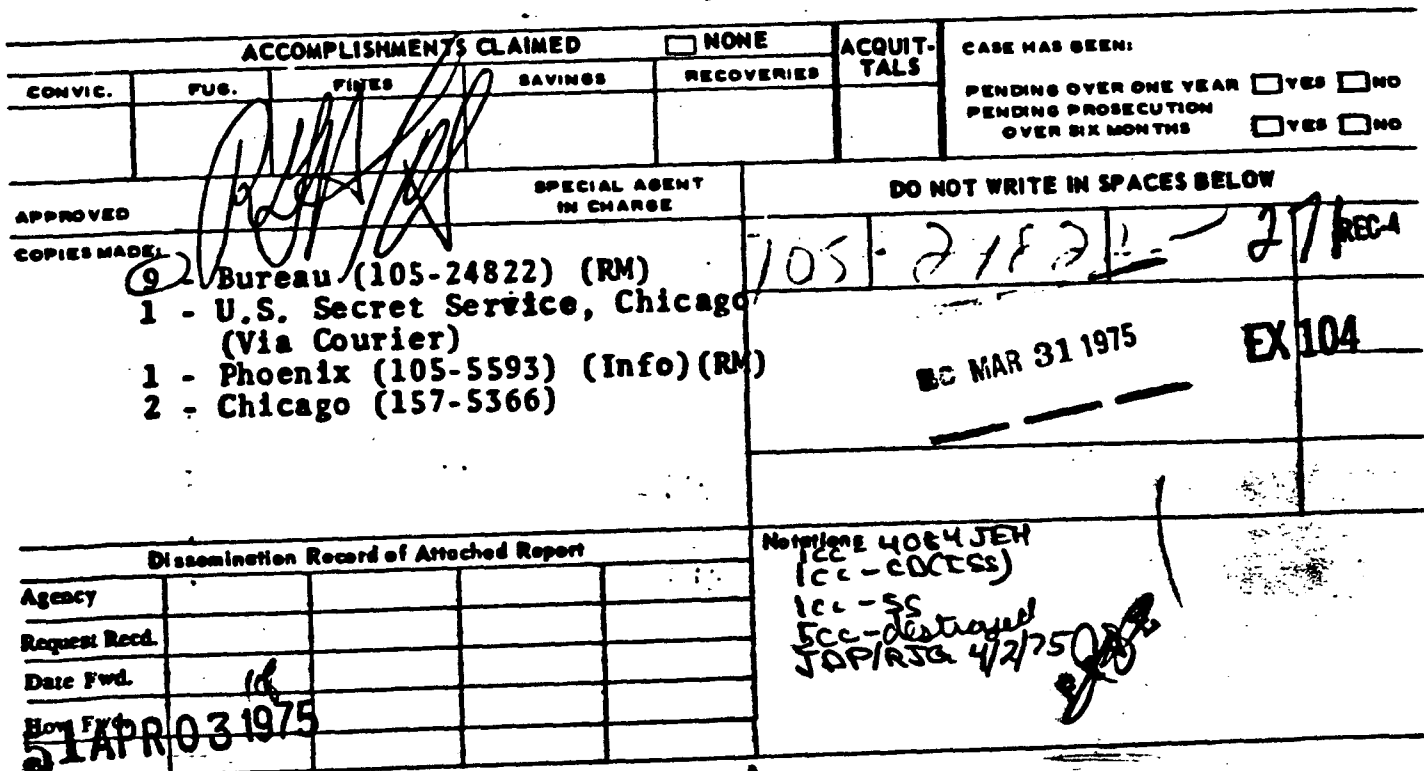 ACCOMPLISHMENTS CLAIMED ☐ NONE
ACQUIT-
TALS
CASE HAS BEEN:
CONVIC.
FUG.
FINES
SAVINGS
RECOVERIES
PENDING OVER ONE YEAR ☐ YES ☐ NO
PENDING PROSECUTION
OVER SIX MONTHS ☐ YES ☐ NO
APPROVED
SPECIAL AGENT
IN CHARGE
DO NOT WRITE IN SPACES BELOW
COPIES MADE:
9 - Bureau (105-24822) (RM)
1 - U.S. Secret Service, Chicago
(Via Courier)
1 - Phoenix (105-5593) (Info)(RM)
2 - Chicago (157-5366)
105 -
271
REC-4
MAR 31 1975
EX 104
Dissemination Record of Attached Report
Agency
Request Recd.
Date Fwd.
How Fwd.
51 APR 03 1975
Notations
1cc
1cc - SS
5cc - destroyed
JDP/RJG 4/2/75